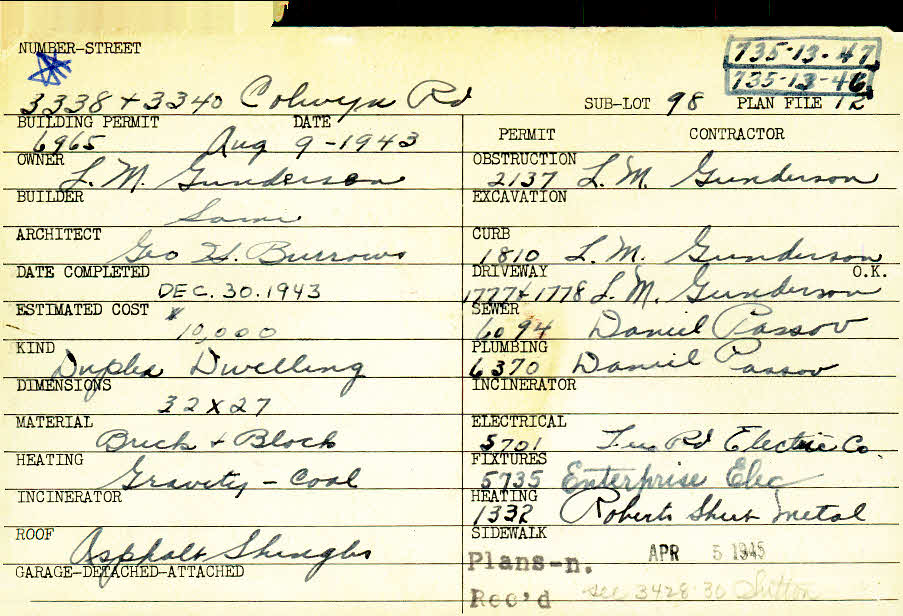 NUMBER-STREET
735-13-47
735-13-46
3338 + 3340 Colwyn Rd
SUB-LOT 98 PLAN FILE 12
BUILDING PERMIT DATE
6965 Aug 9-1943
OWNER
L. M. Gunderson
BUILDER
Same
ARCHITECT
Geo H. Burrows
DATE COMPLETED
DEC. 30. 1943
ESTIMATED COST
$10,000
KIND
Duplex Dwelling
DIMENSIONS
32 x 27
MATERIAL
Brick + Block
HEATING
Gravity - Coal
INCINERATOR
ROOF
Asphalt Shingles
GARAGE-DETACHED-ATTACHED
PERMIT CONTRACTOR
OBSTRUCTION
2137 L. M. Gunderson
EXCAVATION
CURB
1810 L. M. Gunderson
DRIVEWAY O.K.
1777 + 1778 L. M. Gunderson
SEWER
6094 Daniel Passov
PLUMBING
6370 Daniel Passov
INCINERATOR
ELECTRICAL
5701 Rd Electric Co.
FIXTURES
5735 Enterprise Elec
HEATING
1332 Roberts Sheet Metal
SIDEWALK
Plans-n. APR 5 1945
Rec'd see 3428-30 Sutton